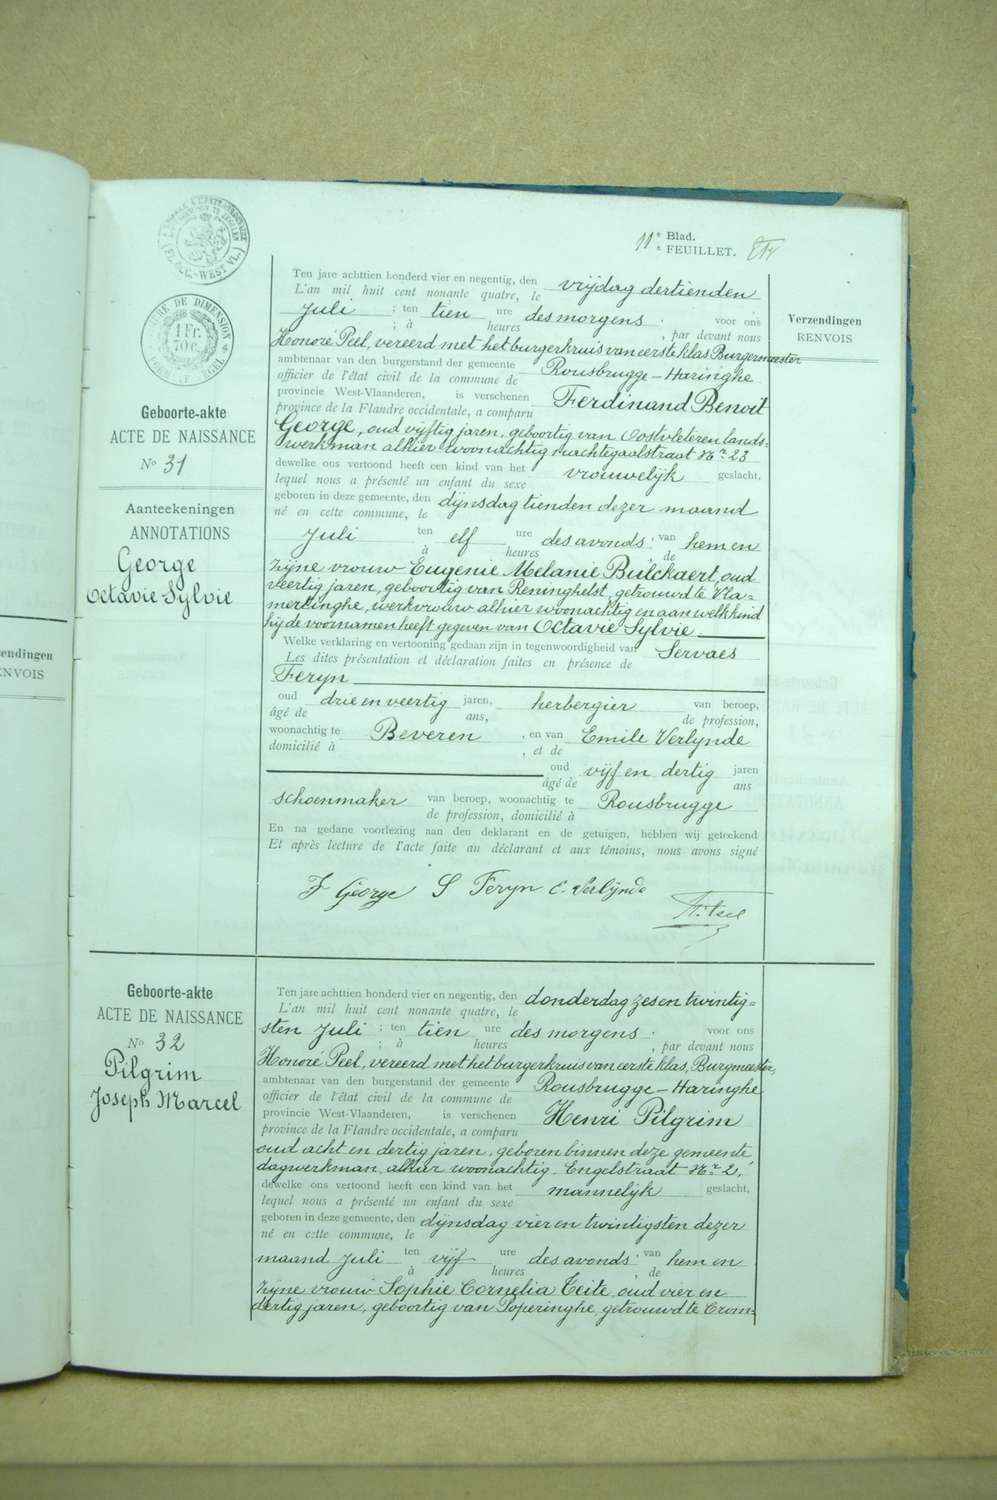 11e Blad.
" FEUILLET.
TIMBRE DE DIMENSION
1 Fr.
70 c.
Verzendingen
RENVOIS
Geboorte-akte
ACTE DE NAISSANCE
No 31
Aanteekeningen
ANNOTATIONS
George
Octavie Sylvie
Ten jare achttien honderd vier en negentig, den vrijdag dertienden
L'an mil huit cent nonante quatre, le
Juli ; ten tien ure des morgens . voor ons
; à heures , par devant nous
Honoré Peel, vereerd met het burgerkruis van eerste klas Burgermeester
ambtenaar van den burgerstand der gemeente Rousbrugge-Haringhe
officier de l'état civil de la commune de
provincie West-Vlaanderen, is verschenen Ferdinand Benoit
province de la Flandre occidentale, a comparu
George, oud vijftig jaren, geboortig van Oostvleteren lands-
werkman alhier woonachtig nachtegaalstraat No 23
dewelke ons vertoond heeft een kind van het vrouwelijk geslacht,
lequel nous a présenté un enfant du sexe
geboren in deze gemeente, den dijnsdag tienden dezer maand
né en cette commune, le
Juli ten elf ure des avonds : van hem en
à heures de
zijne vrouw Eugenie Melanie Bulckaert, oud
veertig jaren, geboortig van Reninghelst, getrouwd te Vla=
mertinghe, werkvrouw alhier woonachtig en aan welk kind
hij de voornamen heeft gegeven van Octavie Sylvie
Welke verklaring en vertooning gedaan zijn in tegenwoordigheid van Servaes
Les dites présentation et déclaration faites en présence de
Feryn
oud drie en veertig jaren, herbergier van beroep,
âgé de ans, de profession,
woonachtig te Beveren , en van Emile Verlynde
domicilié à , et de
oud vijf en dertig jaren
âgé de ans
schoenmaker van beroep, woonachtig te Rousbrugge
de profession, domicilié à
En na gedane voorlezing aan den deklarant en de getuigen, hebben wij geteekend
Et après lecture de l'acte faite au déclarant et aux témoins, nous avons signé
F George S Feryn E. Verlynde
H. Peel
Geboorte-akte
ACTE DE NAISSANCE
No 32
Pilgrim
Joseph Marcel
Ten jare achttien honderd vier en negentig, den donderdag zes en twintig=
L'an mil huit cent nonante quatre, le
sten Juli ; ten tien ure des morgens . voor ons
; à heures , par devant nous
Honoré Peel, vereerd met het burgerkruis van eerste klas, Burgmeester,
ambtenaar van den burgerstand der gemeente Rousbrugge-Haringhe
officier de l'état civil de la commune de
provincie West-Vlaanderen, is verschenen Henri Pilgrim
province de la Flandre occidentale, a comparu
oud acht en dertig jaren, geboren binnen deze gemeente
dagwerkman, alhier woonachtig Engelstraat No 2,
dewelke ons vertoond heeft een kind van het mannelijk geslacht,
lequel nous a présenté un enfant du sexe
geboren in deze gemeente, den dijnsdag vier en twintigsten dezer
né en cette commune, le
maand Juli ten vijf ure des avonds : van hem en
à heures , de
zijne vrouw Sophie Cornelia Teite, oud vier en
dertig jaren, geboortig van Poperinghe, getrouwd te Crom=
endingen
NVOIS